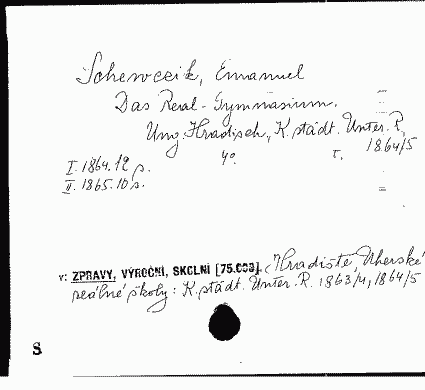 Schewczik, Emanuel
Das Real-Gymnasium.
Ung. Hradisch, K. städt. Unter. R.
I. 1864. 19 s. 4o. r. 1864/5
II. 1865. 10 s.
v: ZPRAVY, VÝROČNÍ, SKOLNÍ [75.003]. (Hradiště, Uherské
reálné školy: K. städt. Unter. R. 1863/4, 1864/5
S